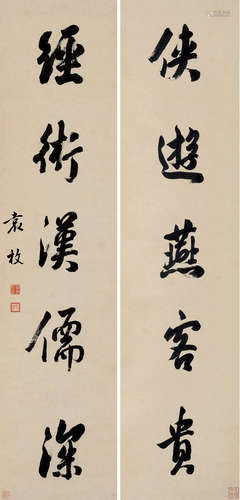 俠遊燕客貴
經術漢儒深
袁枚